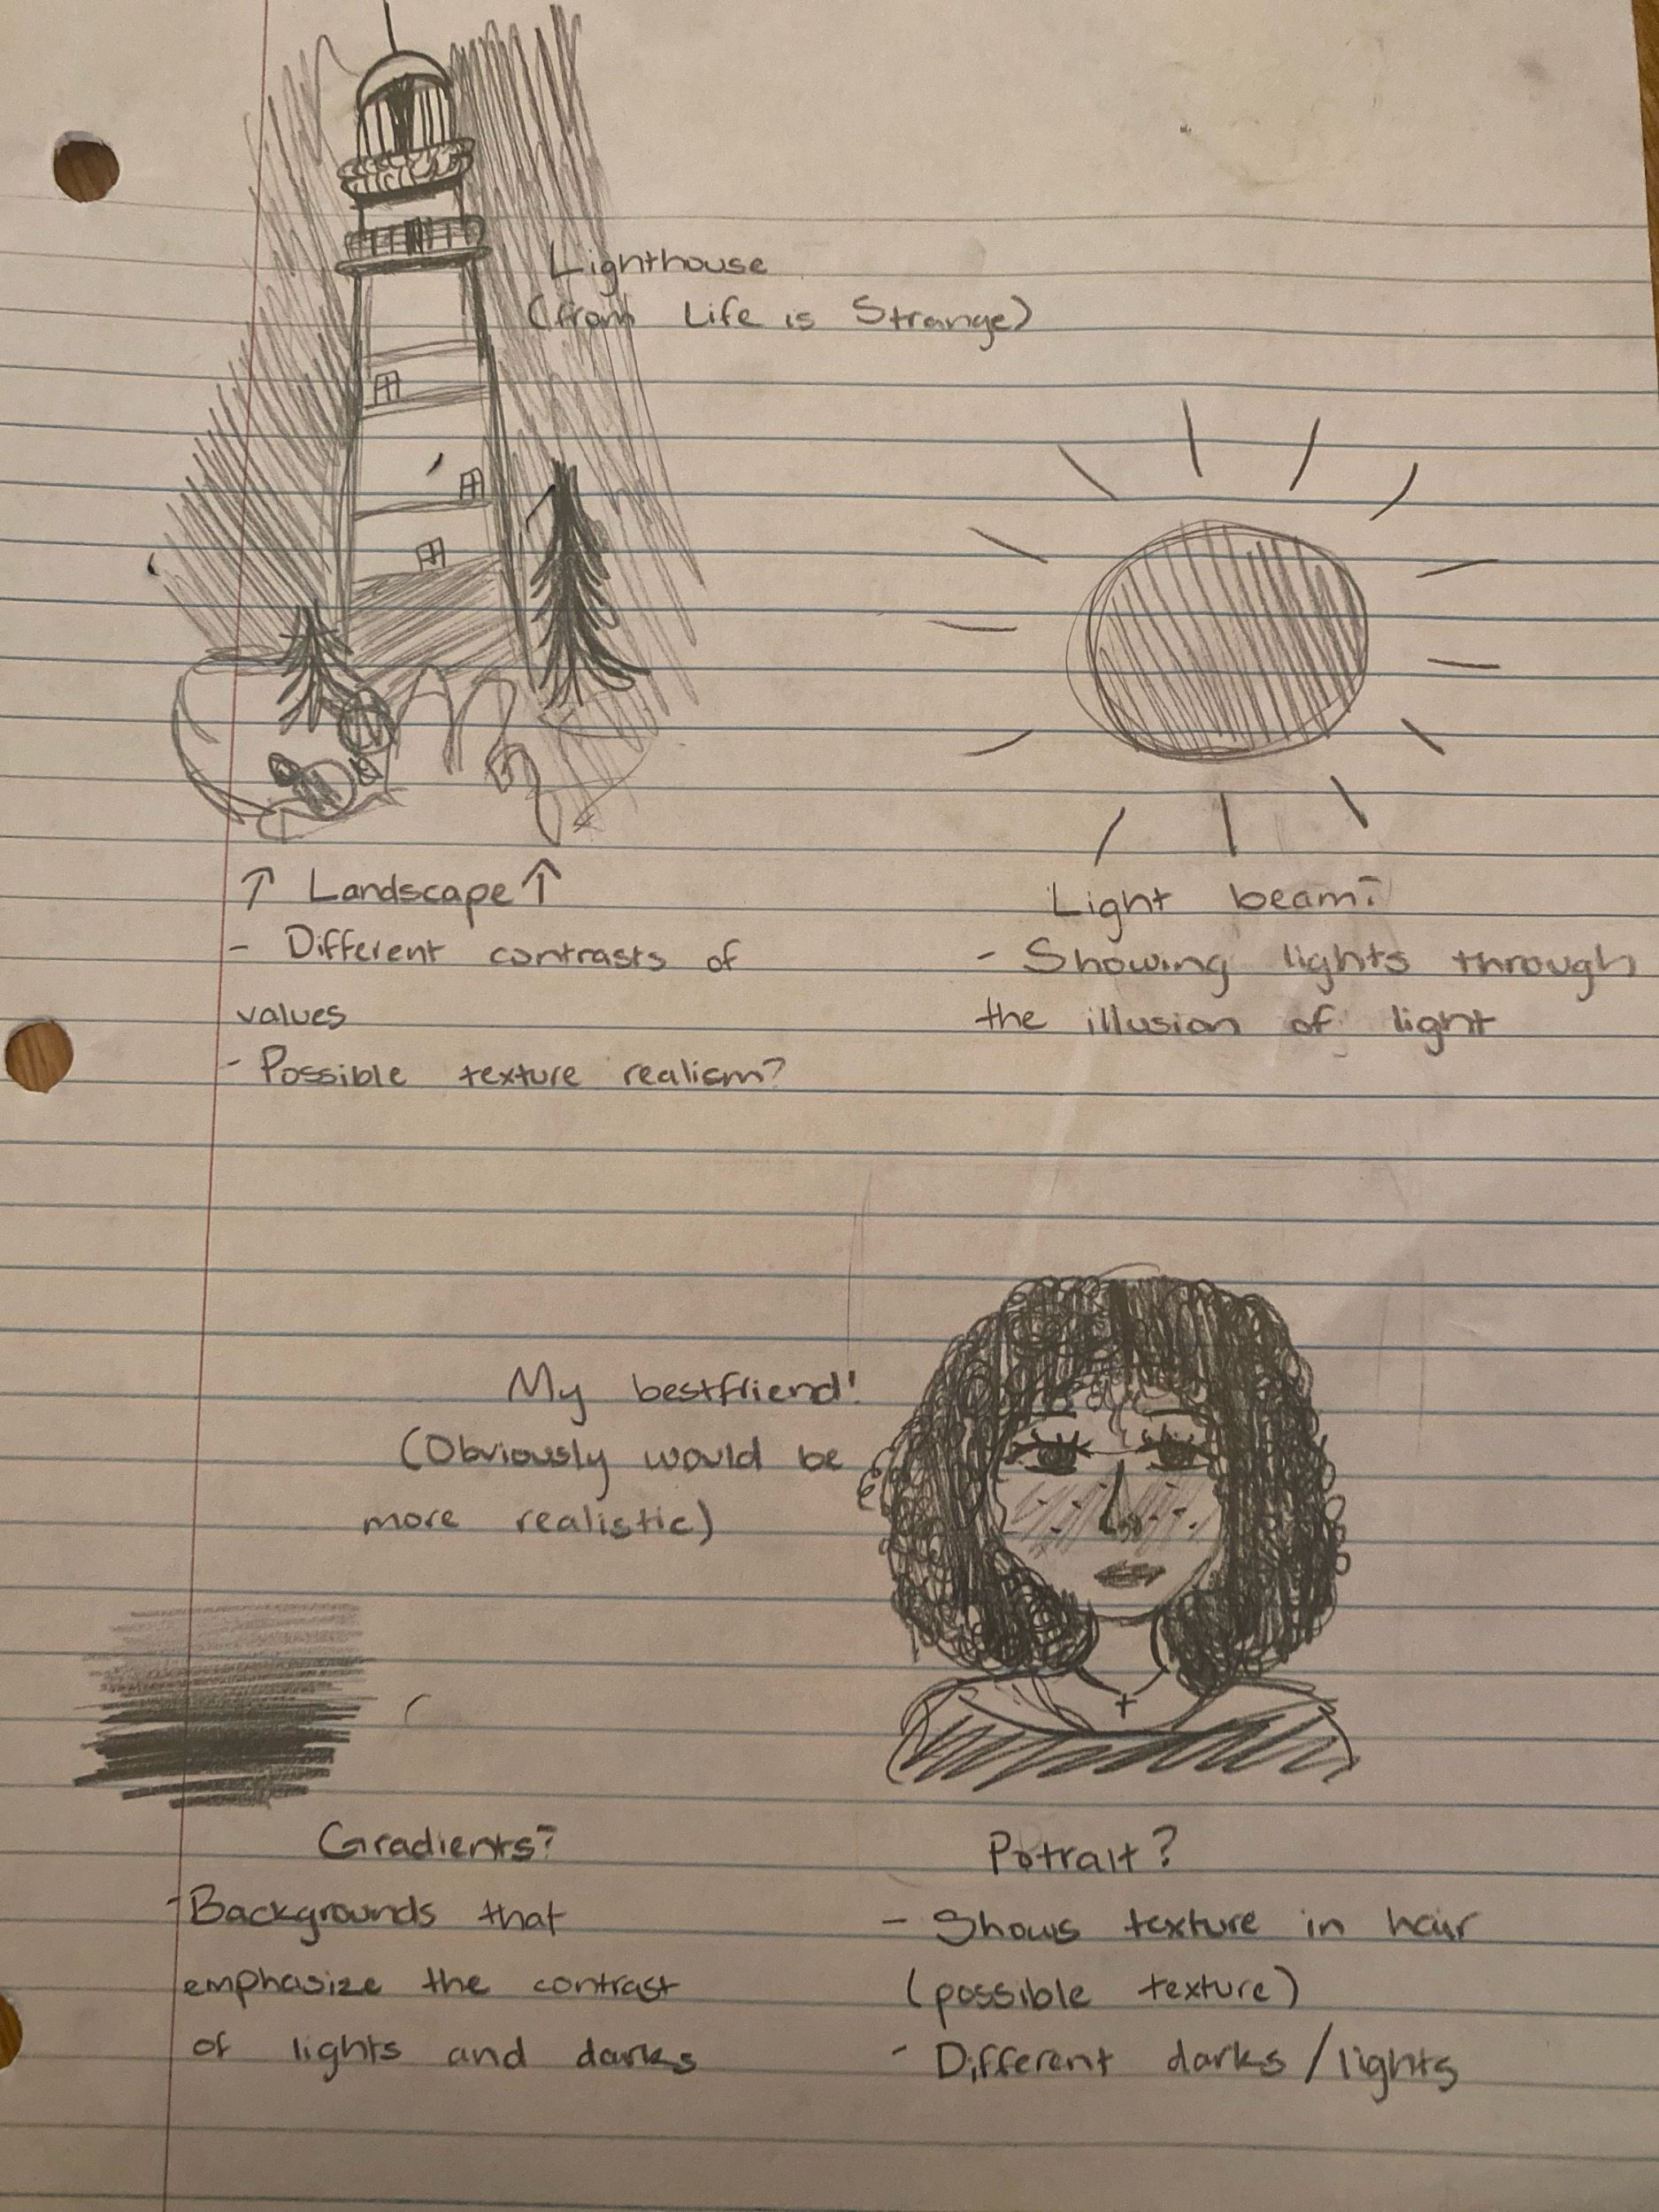 Lighthouse
(from Life is Strange)
↑ Landscape ↑
- Different contrasts of
values
- Possible texture realism?
Light beam?
- Showing lights through
the illusion of light
My bestfriend!
(Obviously would be
more realistic)
Gradients?
- Backgrounds that
emphasize the contrast
of lights and darks
Potrait?
- Shows texture in hair
(possible texture)
- Different darks/lights